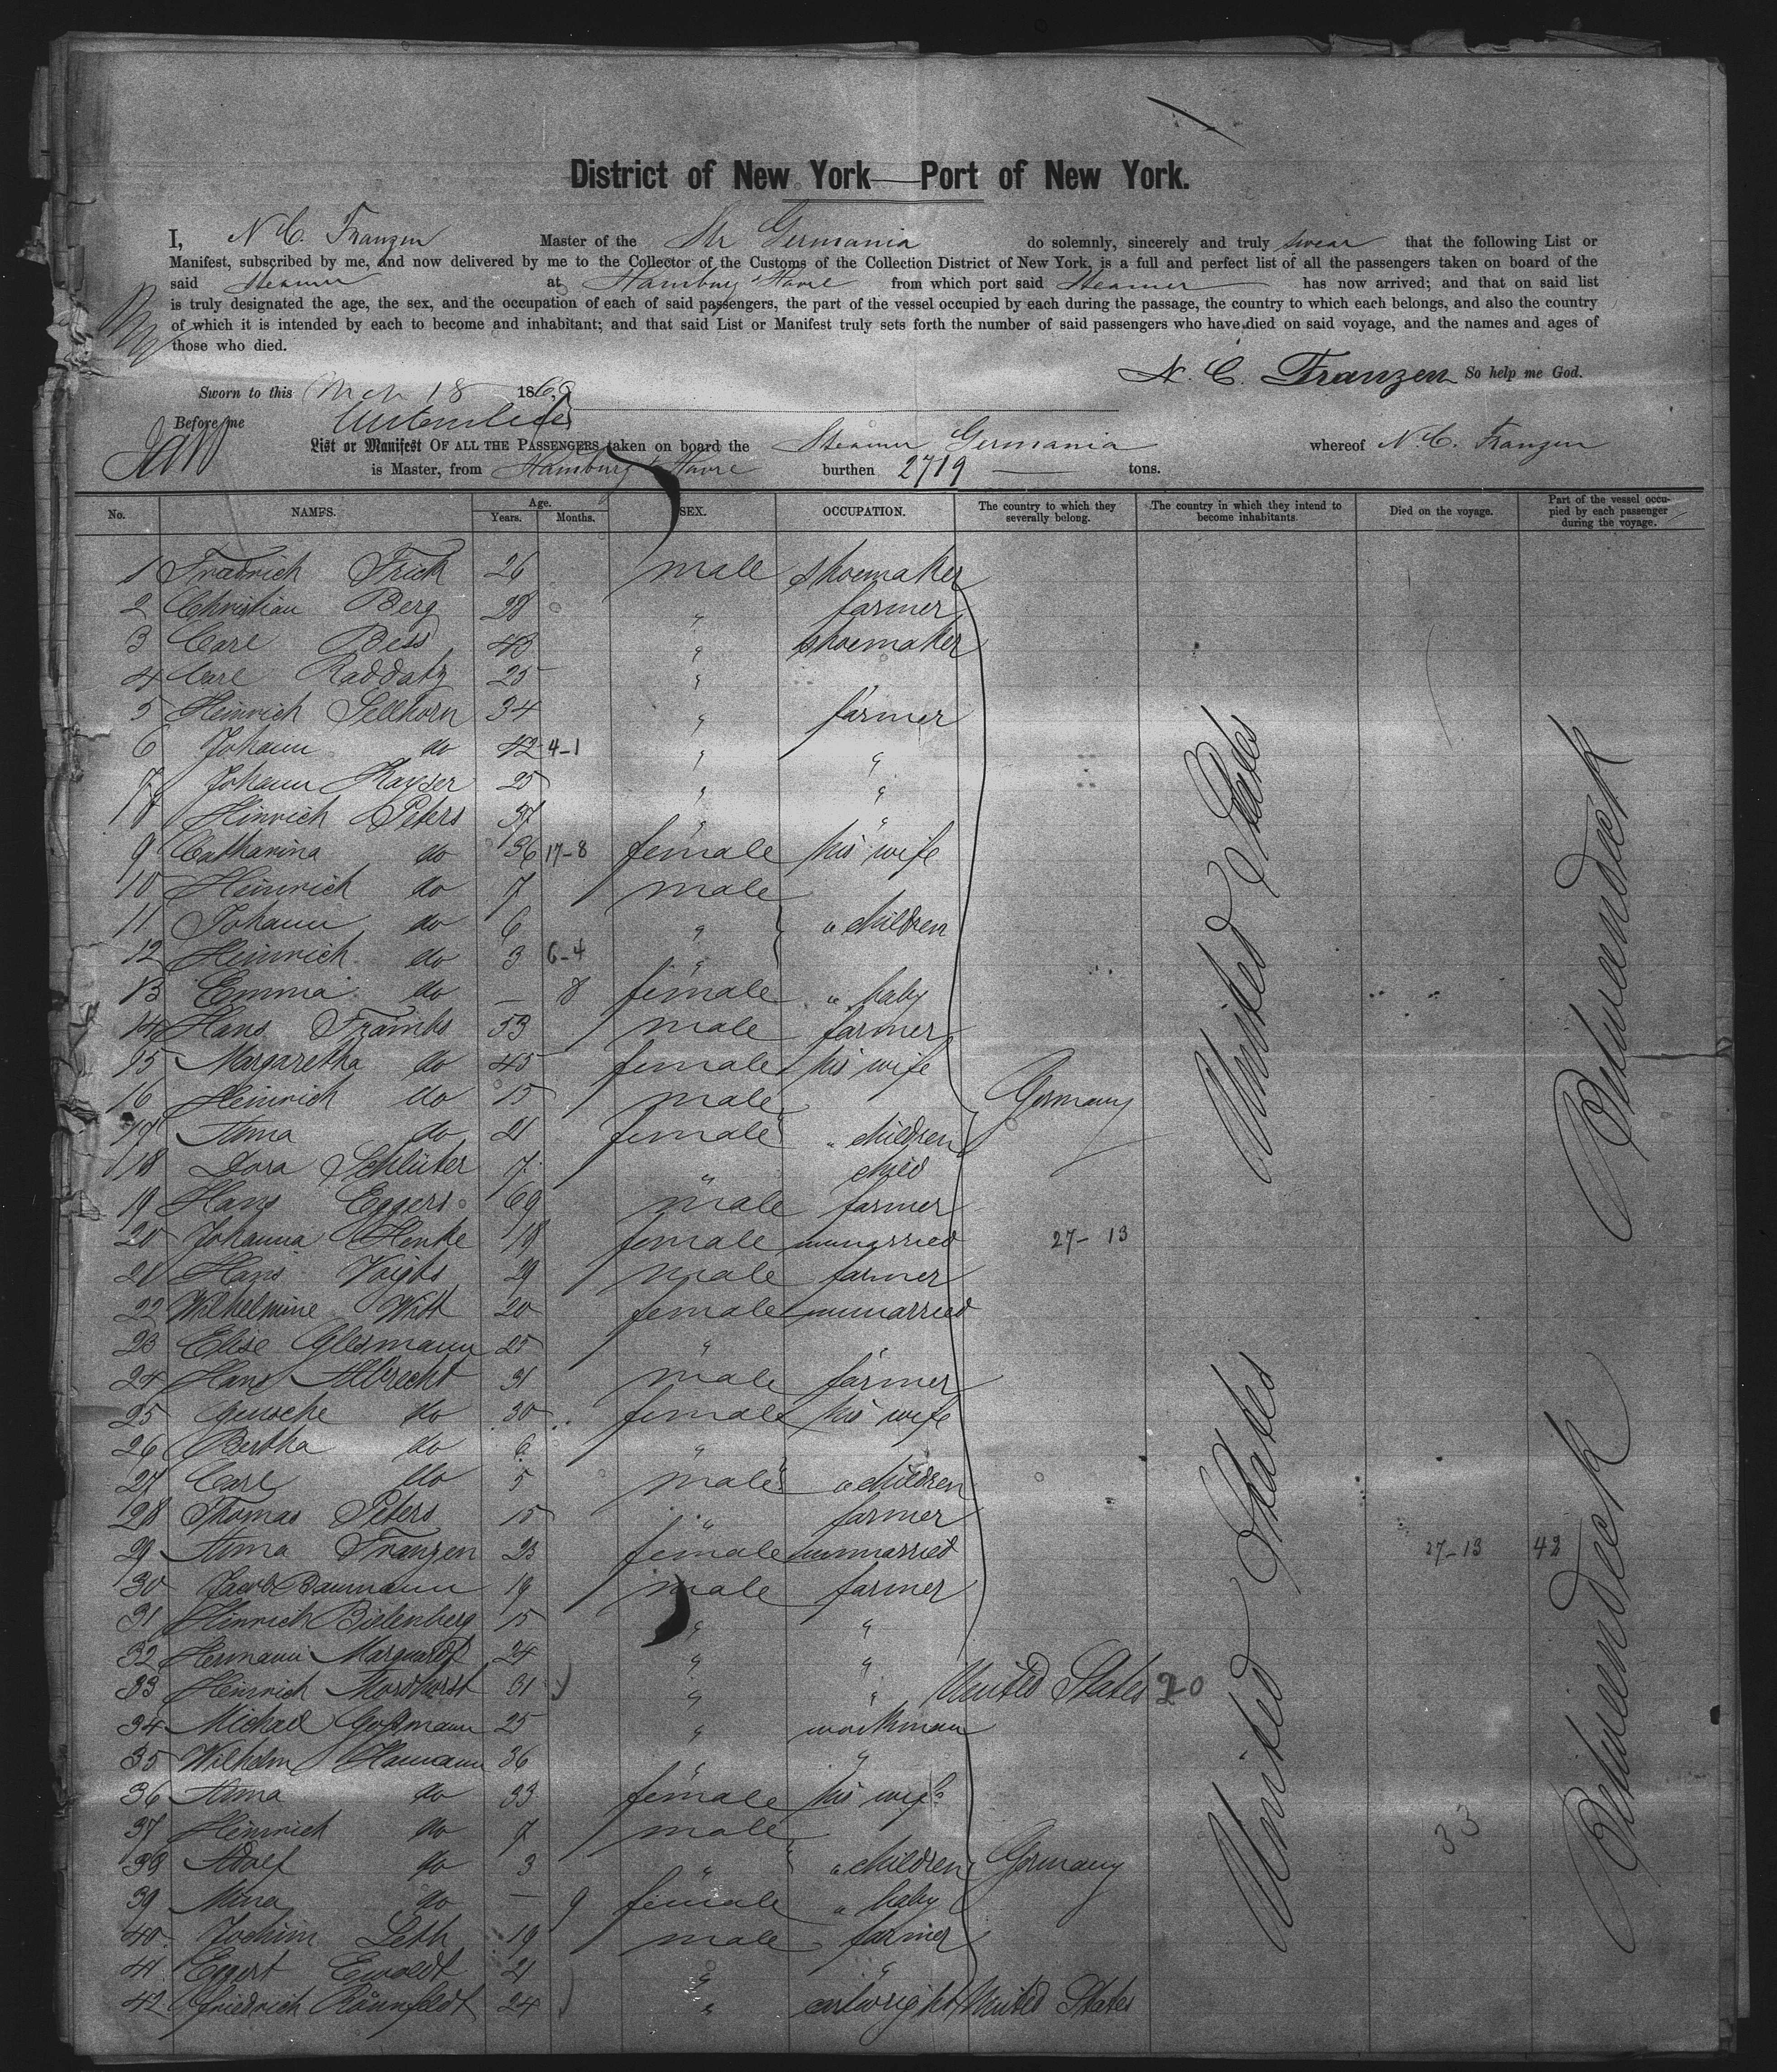 District of New York — Port of New York.
I, N. C. Franzen Master of the Str Germania do solemnly, sincerely and truly swear that the following List or
Manifest, subscribed by me, and now delivered by me to the Collector of the Customs of the Collection District of New York, is a full and perfect list of all the passengers taken on board of the
said Steamer at Hamburg & Havre from which port said Steamer has now arrived; and that on said list
is truly designated the age, the sex, and the occupation of each of said passengers, the part of the vessel occupied by each during the passage, the country to which each belongs, and also the country
of which it is intended by each to become and inhabitant; and that said List or Manifest truly sets forth the number of said passengers who have died on said voyage, and the names and ages of
those who died.
N. C. Franzen So help me God.
Sworn to this Mch 18 1869
Before me
List or Manifest OF ALL THE PASSENGERS taken on board the Steamer Germania whereof N. C. Franzen
is Master, from Hamburg & Havre burthen 2719 tons.
No. NAMES. Age. Years. Months. SEX. OCCUPATION. The country to which they severally belong. The country in which they intend to become inhabitants. Died on the voyage. Part of the vessel occupied by each passenger during the voyage.
1 Friedrich Frick 26 male shoemaker
2 Christian Berg 28 " farmer
3 Carl Bess 43 " shoemaker
4 Carl Raddatz 25 " "
5 Heinrich Sellhorn 34 " farmer
6 Johann do 42 4-1 " "
7 Johann Kayser 25 " "
8 Hinrich Peters 37 " "
9 Catharina do 36 17-8 female his wife
10 Heinrich do 7 male
11 Johann do 6 " " children
12 Heinrich do 3 6-4 "
13 Emma do — 8 female " baby
14 Hans 53 male farmer
15 Margaretha do 45 female his wife
16 Heinrich do 15 male
17 Anna do 21 female " children
18 Dora Schlüter 7 " child
19 Hans Eggers 69 male farmer
20 Johanna Henke 18 female unmarried
21 Hans Voigts 29 male farmer
22 Wilhelmine Witt 20 female unmarried
23 Elise Glesmann 25 " "
24 Hans Albrecht 31 male farmer
25 do 30 female his wife
26 Bertha do 6 "
27 Carl do 5 male " children
28 Thomas Peters 15 " farmer
29 Anna Franzen 23 female unmarried
30 Jacob Baumann 19 male farmer
31 Hinrich Bielenberg 15 " "
32 Hermann Marquardt 24 " "
33 Heinrich Mordhorst 31 " " United States 20
34 Michael Goßmann 25 " workman
35 Wilhelm Hamann 36 " "
36 Anna do 33 female his wife
37 Heinrich do 7 male
38 Adolf do 3 " " children
39 Mina do — 9 female " baby
40 Jochim Leth 19 male farmer
41 Eggert Ewoldt 21 " "
42 Friedrich Rönnfeldt 24 " cartwright United States
Germany
27-13
Germany
United States
United States
27-13 42
33
Betweendeck
Betweendeck